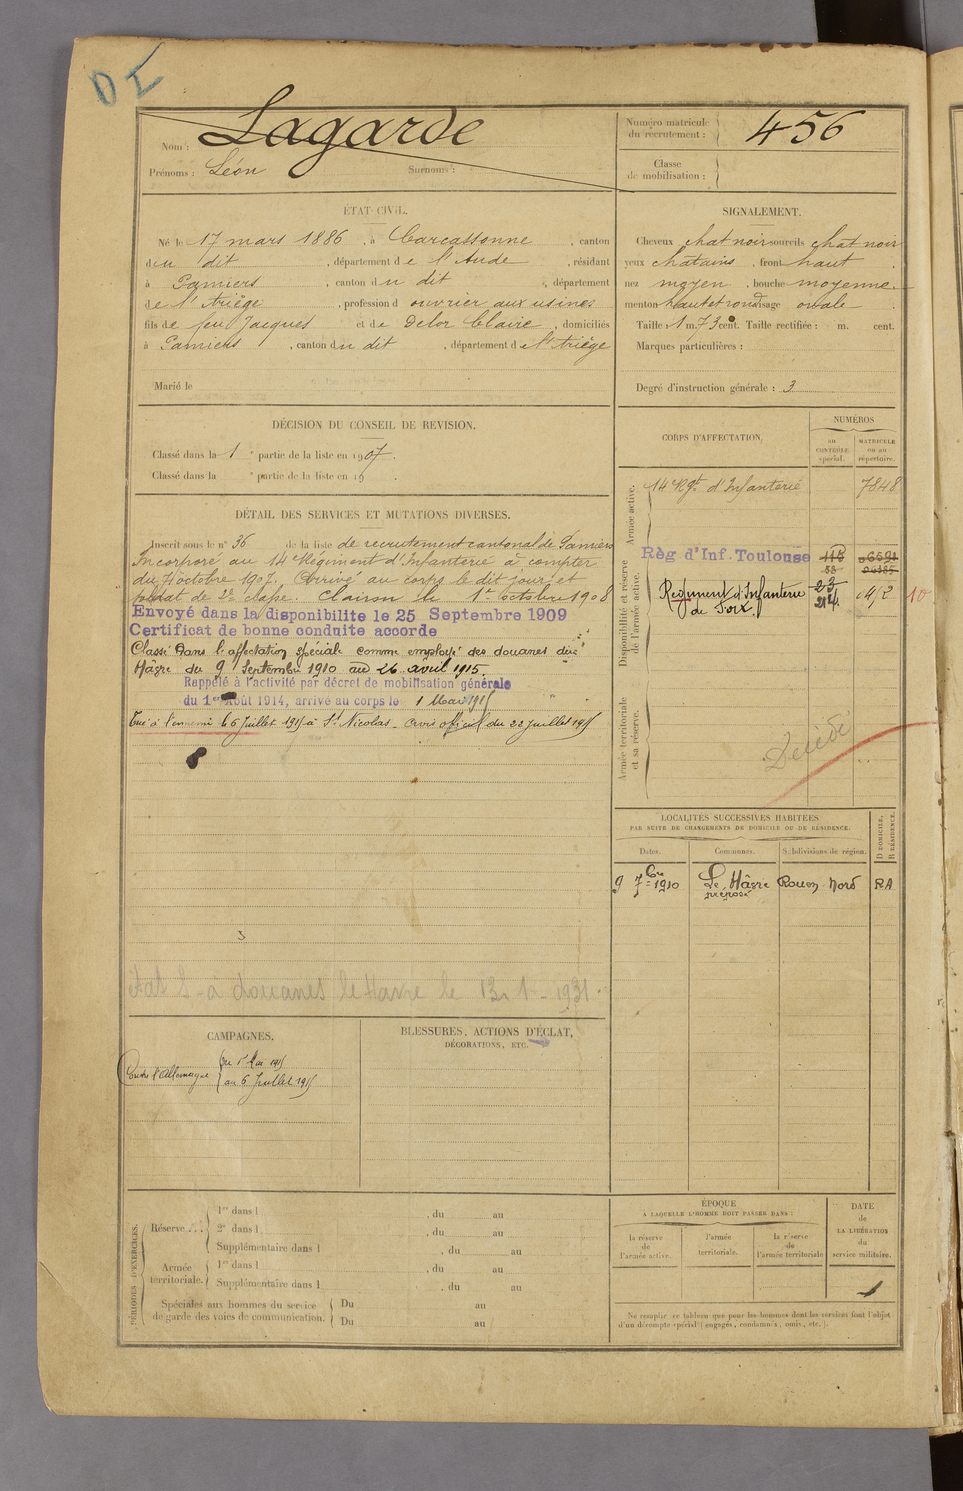 DI
Nom : Lagarde
Prénoms : Léon Surnoms :
Numéro matricule du recrutement : 456
Classe de mobilisation :
ÉTAT CIVIL.
Né le 17 mars 1886, à Carcassonne, canton
du dit, département de l'Aude, résidant
à Pamiers, canton du dit, département
de l'Ariège, profession d ouvrier aux usines
fils de feu Jacques et de Delor Claire, domiciliés
à Pamiers, canton du dit, département de l'Ariège
Marié le
SIGNALEMENT.
Cheveux chat noir sourcils chat noir
yeux châtains, front haut
nez moyen, bouche moyenne
menton haut et rond visage ovale
Taille : 1 m. 73 cent. Taille rectifiée : m. cent.
Marques particulières :
Degré d'instruction générale : 3
DÉCISION DU CONSEIL DE REVISION.
Classé dans la 1e partie de la liste en 1907.
Classé dans la e partie de la liste en 19 .
DÉTAIL DES SERVICES ET MUTATIONS DIVERSES.
Inscrit sous le n° 36 de la liste de recrutement cantonal de Pamiers
Incorporé au 14e Régiment d'Infanterie à compter
du 7 octobre 1907. Arrivé au corps le dit jour et
soldat de 2e classe. Clairon le 1er octobre 1908
Envoyé dans la disponibilite le 25 Septembre 1909
Certificat de bonne conduite accorde
Classé dans l'affectation spéciale comme employé des douanes du
Hâvre du 9 Septembre 1910 au 26 avril 1915.
Rappelé à l'activité par décret de mobilisation générale
du 1er Août 1914, arrivé au corps le 1 Mai 1915
Tué à l'ennemi le 6 Juillet 1915 à St Nicolas - Avis officiel du 22 Juillet 1915
3
à douanes le Havre le 13-1-1931.
CORPS D'AFFECTATION.
NUMÉROS
AU CONTRÔLE spécial.
MATRICULE ou au répertoire.
Armée active.
14 Rgt d'Infanterie 7848
Disponibilité et réserve de l'armée active.
Règ d'Inf. Toulouse
Régiment d'Infanterie de Foix.
214
10
Armée territoriale et sa réserve.
Décédé
LOCALITÉS SUCCESSIVES HABITÉES
PAR SUITE DE CHANGEMENTS DE DOMICILE OU DE RÉSIDENCE.
Dates. Communes. Subdivisions de région. D DOMICILE. R RÉSIDENCE.
9 7bre 1910 Le Hâvre Rouen Nord RA
préposé
CAMPAGNES.
Contre l'Allemagne
du 1er Mai 1915
au 6 Juillet 1915
BLESSURES, ACTIONS D'ÉCLAT,
DÉCORATIONS, ETC.
PÉRIODES D'EXERCICES.
Réserve ...
1re dans l , du au
2e dans l , du au
Supplémentaire dans l , du au
Armée territoriale.
1re dans l , du au
Supplémentaire dans l , du au
Spéciales aux hommes du service
de garde des voies de communication.
Du au
Du au
ÉPOQUE
À LAQUELLE L'HOMME DOIT PASSER DANS :
la réserve de l'armée active.
l'armée territoriale.
la réserve de l'armée territoriale
DATE
de
LA LIBÉRATION
du
service militaire.
Ne remplir ce tableau que pour les hommes dont les services font l'objet
d'un décompte spécial (engagés, condamnés, omis, etc.).